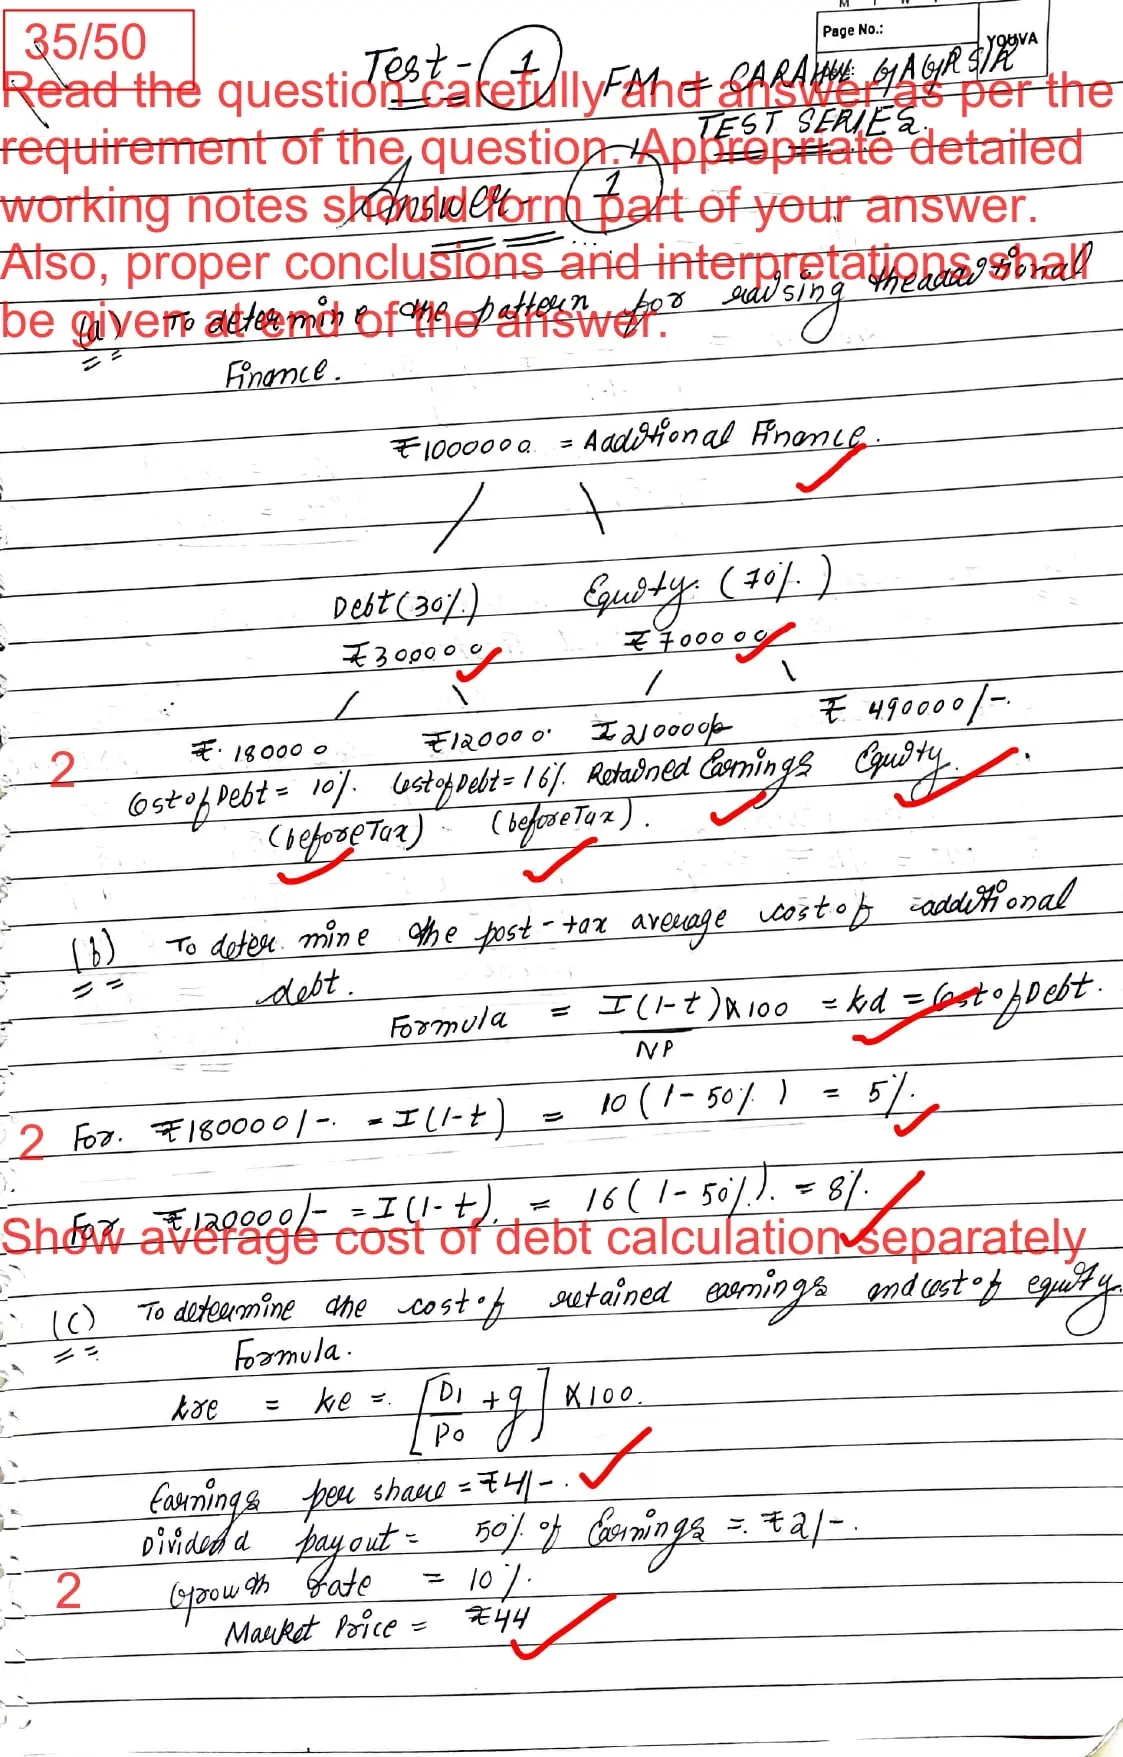 35/50
Page No.:
YOUVA
Test - 1
FM = CA RAHUL GARG SIR
TEST SERIES.
Read the question carefully and answer as per the
requirement of the question. Appropriate detailed
working notes should form part of your answer.
Also, proper conclusions and interpretations shall
be given at end of the answer.
Answer - 1
(a) To determine the pattern for raising the additional
Finance.
₹1000000 = Additional Finance.
Debt (30%) Equity. (70%.)
₹300000 ₹700000
₹. 180000 ₹120000. ₹210000 ₹ 490000/-.
2
Cost of Debt = 10%. Cost of Debt = 16%. Retained Earnings Equity.
(before Tax) (before Tax).
(b) To determine the post-tax average cost of additional
debt.
Formula = I(1-t) X100 = kd = Cost of Debt.
NP
2 For. ₹180000/-. = I(1-t) = 10(1-50%) = 5%.
For ₹120000/- = I(1-t). = 16(1-50%). = 8%.
Show average cost of debt calculation separately
(c) To determine the cost of retained earnings and cost of equity.
Formula.
kre = ke =. [D1/P0 + g] X100.
Earnings per share = ₹4/-.
Dividend payout = 50% of Earnings =. ₹2/-.
2
Growth rate = 10%.
Market Price = ₹44